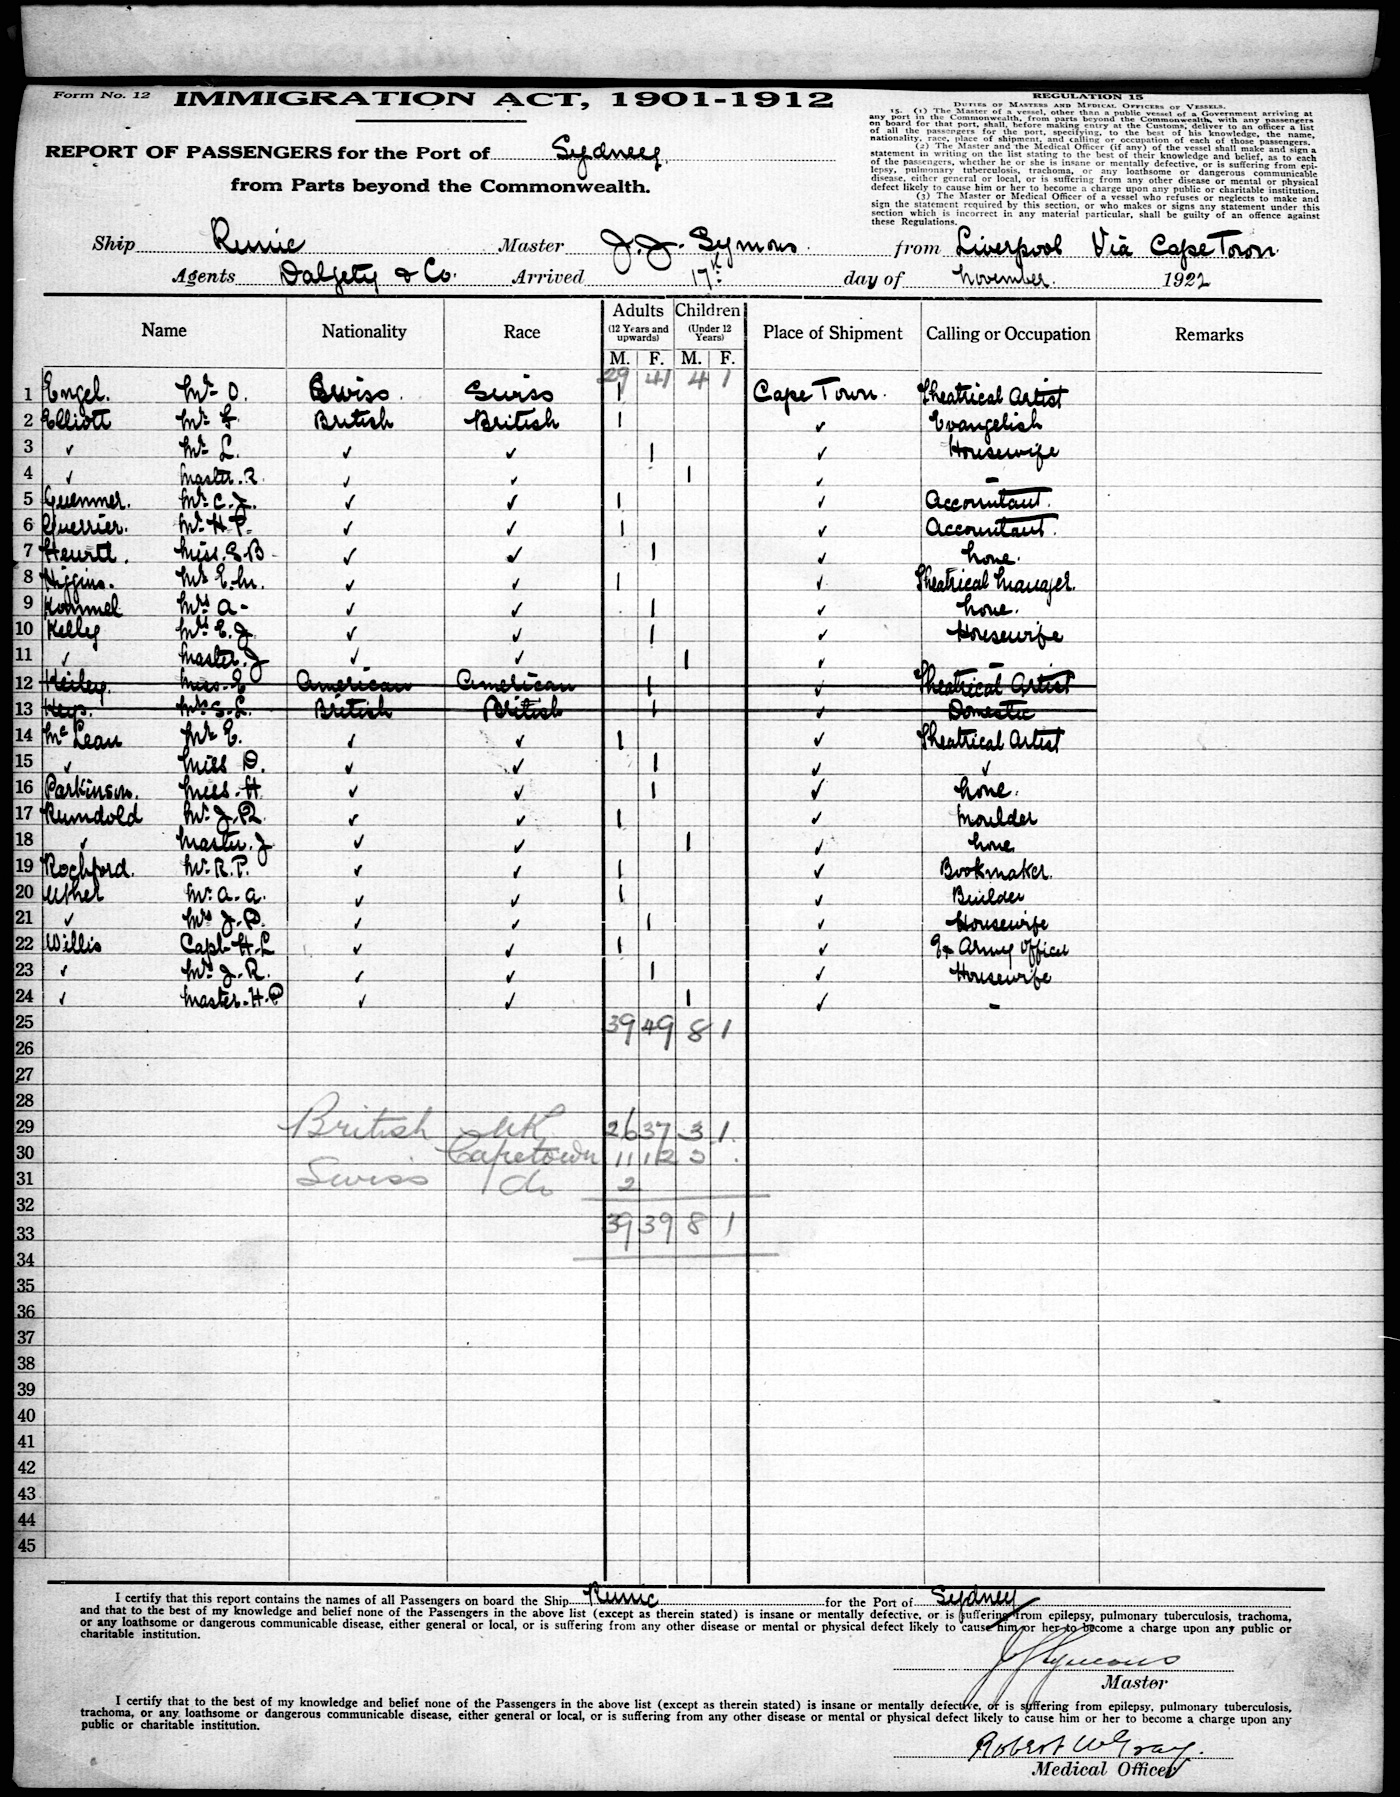 Form No. 12
IMMIGRATION ACT, 1901-1912
REPORT OF PASSENGERS for the Port of Sydney
from Parts beyond the Commonwealth.
REGULATION 15
DUTIES OF MASTERS AND MEDICAL OFFICERS OF VESSELS.
15. (1) The Master of a vessel, other than a public vessel of a Government arriving at
any port in the Commonwealth, from parts beyond the Commonwealth, with any passengers
on board for that port, shall, before making entry at the Customs, deliver to an officer a list
of all the passengers for the port, specifying, to the best of his knowledge, the name,
nationality, race, place of shipment, and calling or occupation of each of those passengers.
(2) The Master and the Medical Officer (if any) of the vessel shall make and sign a
statement in writing on the list stating to the best of their knowledge and belief, as to each
of the passengers, whether he or she is insane or mentally defective, or is suffering from epi-
lepsy, pulmonary tuberculosis, trachoma, or any loathsome or dangerous communicable
disease, either general or local, or is suffering from any other disease or mental or physical
defect likely to cause him or her to become a charge upon any public or charitable institution.
(3) The Master or Medical Officer of a vessel who refuses or neglects to make and
sign the statement required by this section, or who makes or signs any statement under this
section which is incorrect in any material particular, shall be guilty of an offence against
these Regulations.
Ship Runic Master J. J. Symons from Liverpool Via Cape Town
Agents Dalgety & Co. Arrived 17th day of November 1922
Name Nationality Race Adults (12 Years and upwards) Children (Under 12 Years) Place of Shipment Calling or Occupation Remarks
M. F. M. F.
29 41 4 1
1 Engel. Mr O. Swiss. Swiss 1 Cape Town. Theatrical Artist
2 Elliott Mr F. British British 1 ✓ Evangelish
3 ✓ Mrs L. ✓ ✓ 1 ✓ Housewife
4 ✓ Master. R. ✓ ✓ 1 ✓ -
5 Mr C. J. ✓ ✓ 1 ✓ Accountant.
6 Guerrier. Mr H. P. ✓ ✓ 1 ✓ Accountant.
7 Miss. E. B ✓ ✓ 1 ✓ None.
8 Higgins. Mr E. M. ✓ ✓ 1 ✓ Theatrical Manager.
9 Kommel Mrs A- ✓ ✓ 1 ✓ None.
10 Kelly Mrs E. J. ✓ ✓ 1 ✓ Housewife
11 ✓ Master. J ✓ ✓ 1 ✓ -
12 Keiley. Miss. E American American 1 ✓ Theatrical Artist
13 Keys. Mrs S. L. British British 1 ✓ Domestic
14 McLean Mr E. ✓ ✓ 1 ✓ Theatrical Artist
15 ✓ Miss D. ✓ ✓ 1 ✓ ✓
16 Parkinson. Miss. H ✓ ✓ 1 ✓ None.
17 Rumdold Mr J. R. ✓ ✓ 1 ✓ Moulder
18 ✓ Master. J ✓ ✓ 1 ✓ None
19 Rochford. Mr R. P. ✓ ✓ 1 ✓ Bookmaker.
20 Usher Mr A. A. ✓ ✓ 1 ✓ Builder
21 ✓ Mrs J. D. ✓ ✓ 1 ✓ Housewife
22 Willis Capt. H. L ✓ ✓ 1 ✓ Ex Army Officer
23 ✓ Mrs J. R. ✓ ✓ 1 ✓ Housewife
24 ✓ Master. H. P ✓ ✓ 1 ✓ -
25 39 49 8 1
26
27
28
29 British UK 26 37 3 1.
30 Capetown 11 12 5 .
31 Swiss do 2
32
33 39 39 8 1
34
35
36
37
38
39
40
41
42
43
44
45
I certify that this report contains the names of all Passengers on board the Ship Runic for the Port of Sydney
and that to the best of my knowledge and belief none of the Passengers in the above list (except as therein stated) is insane or mentally defective, or is suffering from epilepsy, pulmonary tuberculosis, trachoma,
or any loathsome or dangerous communicable disease, either general or local, or is suffering from any other disease or mental or physical defect likely to cause him or her to become a charge upon any public or
charitable institution.
J J Symons
Master
I certify that to the best of my knowledge and belief none of the Passengers in the above list (except as therein stated) is insane or mentally defective, or is suffering from epilepsy, pulmonary tuberculosis,
trachoma, or any loathsome or dangerous communicable disease, either general or local, or is suffering from any other disease or mental or physical defect likely to cause him or her to become a charge upon any
public or charitable institution.
Robert W Gray.
Medical Officer